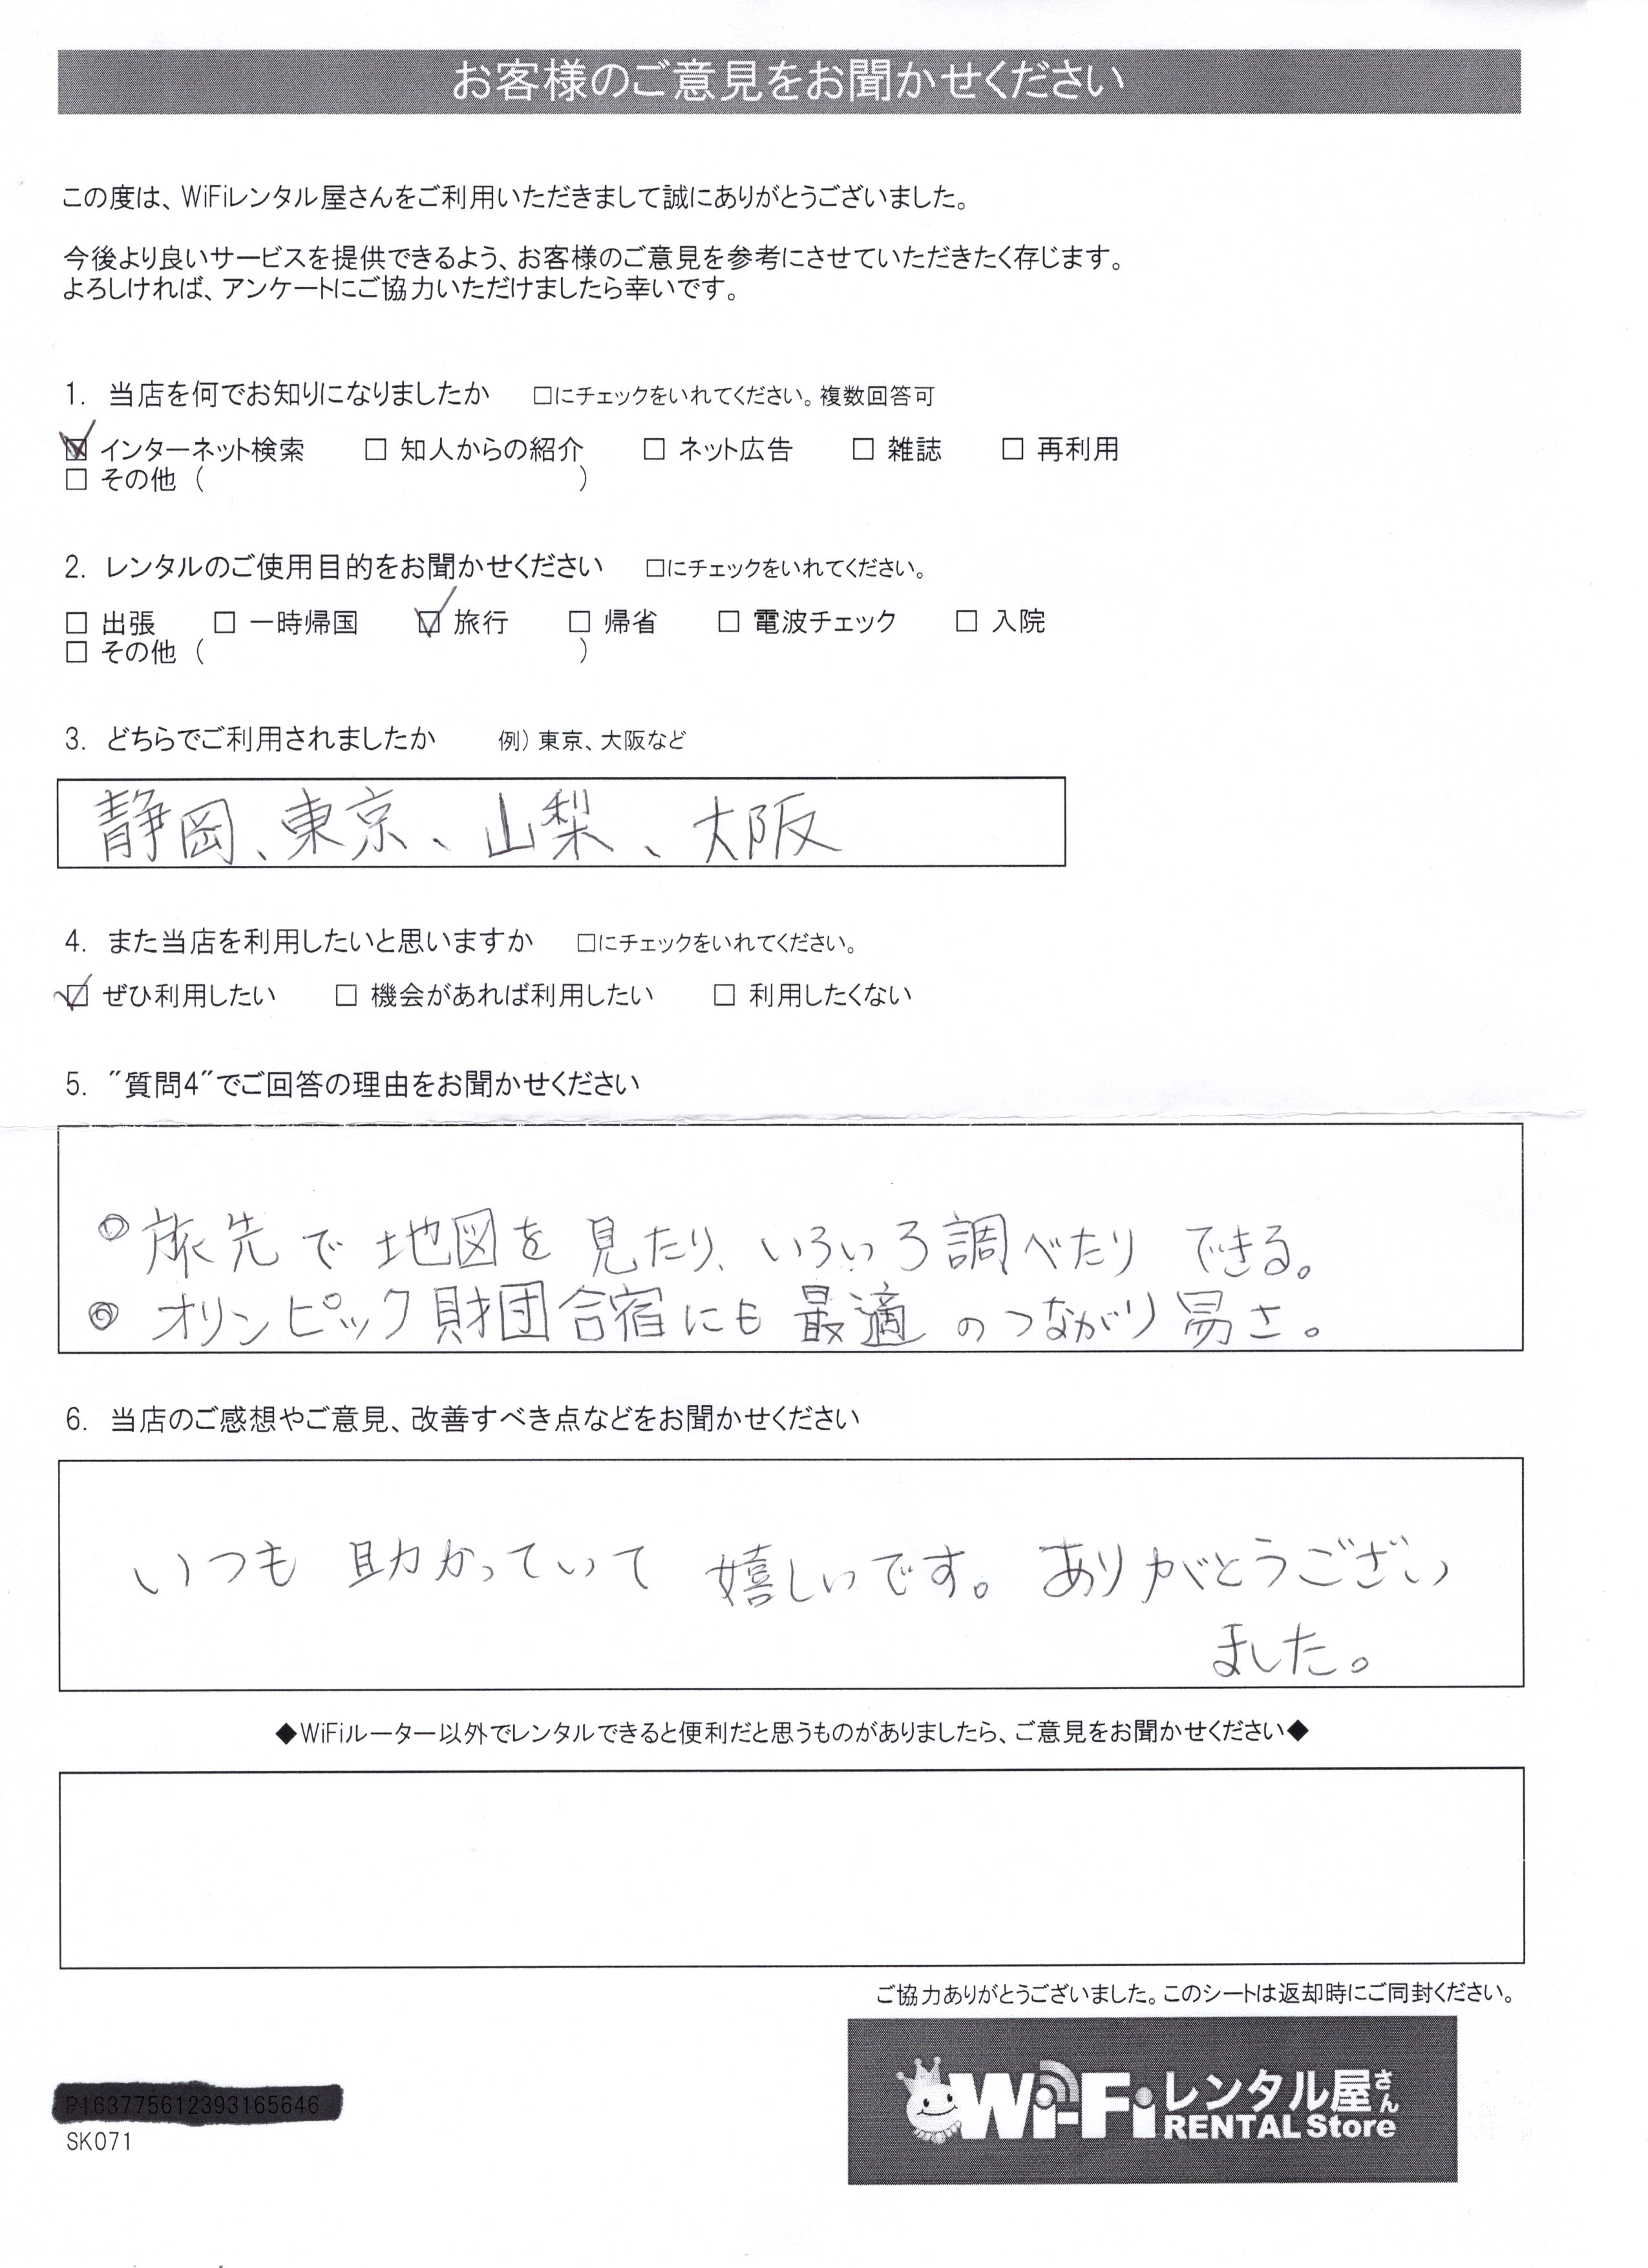 お客様のご意見をお聞かせください
この度は、WiFiレンタル屋さんをご利用いただきまして誠にありがとうございました。
今後より良いサービスを提供できるよう、お客様のご意見を参考にさせていただきたく存じます。
よろしければ、アンケートにご協力いただけましたら幸いです。
1. 当店を何でお知りになりましたか □にチェックをいれてください。複数回答可
☑ インターネット検索 □ 知人からの紹介 □ ネット広告 □ 雑誌 □ 再利用
□ その他 ( )
2. レンタルのご使用目的をお聞かせください □にチェックをいれてください。
□ 出張 □ 一時帰国 ☑ 旅行 □ 帰省 □ 電波チェック □ 入院
□ その他 ( )
3. どちらでご利用されましたか 例) 東京、大阪など
静岡、東京、山梨、大阪
4. また当店を利用したいと思いますか □にチェックをいれてください。
☑ ぜひ利用したい □ 機会があれば利用したい □ 利用したくない
5. "質問4"でご回答の理由をお聞かせください
◎旅先で地図を見たり、いろいろ調べたりできる。
◎オリンピック財団合宿にも最適のつながり易さ。
6. 当店のご感想やご意見、改善すべき点などをお聞かせください
いつも助かっていて嬉しいです。ありがとうござい
ました。
◆WiFiルーター以外でレンタルできると便利だと思うものがありましたら、ご意見をお聞かせください◆
ご協力ありがとうございました。このシートは返却時にご同封ください。
Wi-Fiレンタル屋さん
RENTAL Store
SK071